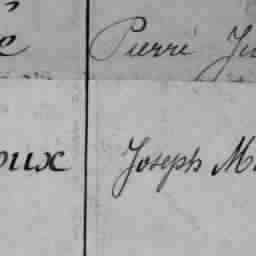 Pierre
oux Joseph M